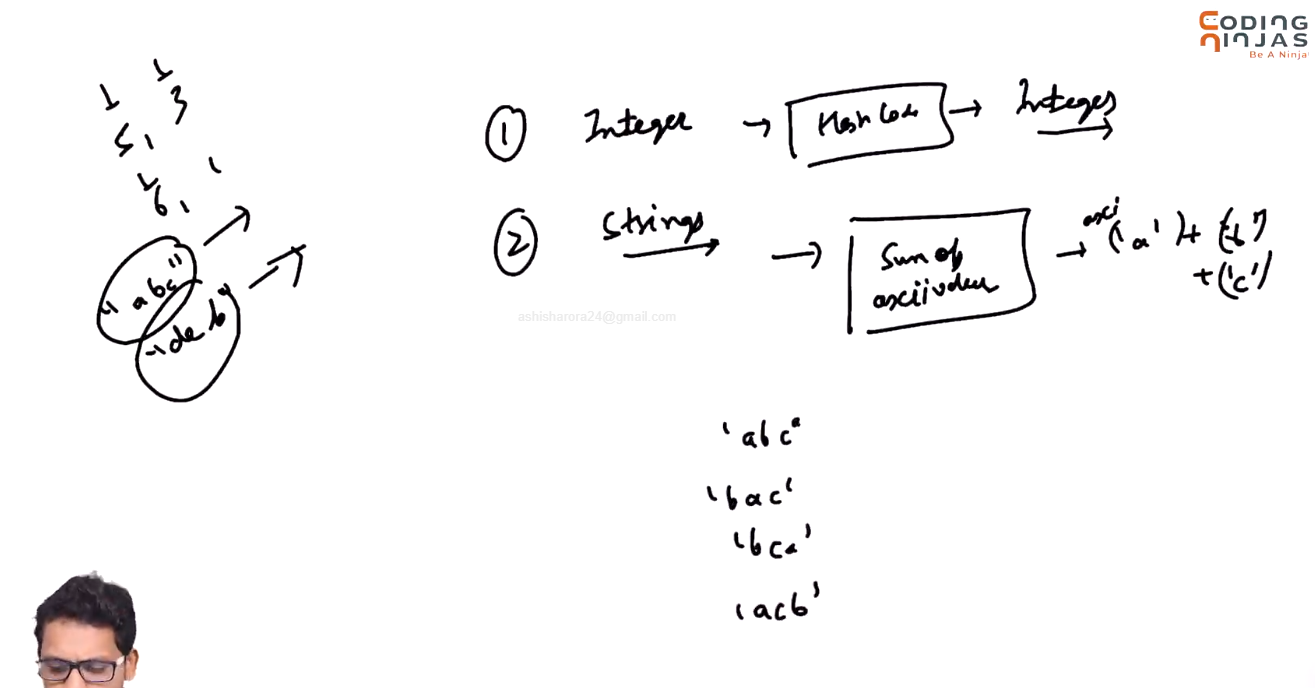 CODING
NINJAS
Be A Ninja
1 1
3
5 1
1 1
6 1
"abc"
"de b"
① Integer → Hash Code → Integers
② Strings → Sum of ascii values → ascii ('a') + ('b')
+ ('c')
ashisharora24@gmail.com
'abc"
'bac'
'bca'
'acb'